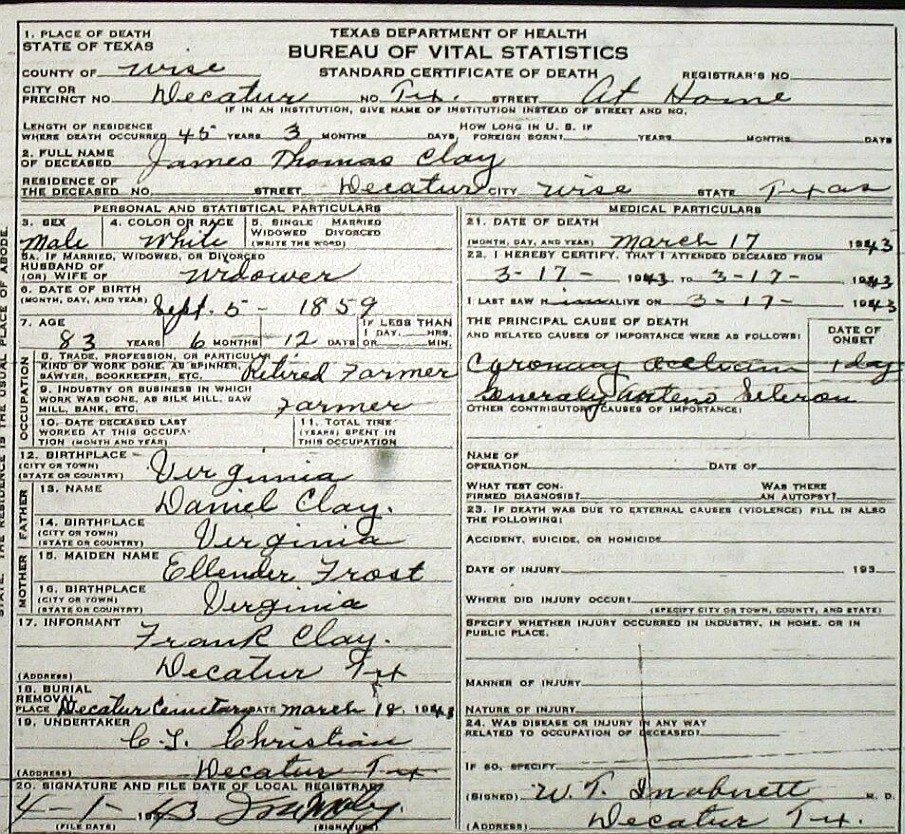 TEXAS DEPARTMENT OF HEALTH
BUREAU OF VITAL STATISTICS
STANDARD CERTIFICATE OF DEATH
1. PLACE OF DEATH
STATE OF TEXAS
COUNTY OF Wise
REGISTRAR'S NO.
CITY OR
PRECINCT NO. Decatur NO. Tex. STREET At Home
IF IN AN INSTITUTION, GIVE NAME OF INSTITUTION INSTEAD OF STREET AND NO.
LENGTH OF RESIDENCE
WHERE DEATH OCCURRED 45 YEARS 3 MONTHS DAYS. HOW LONG IN U. S. IF FOREIGN BORN? YEARS MONTHS DAYS
2. FULL NAME
OF DECEASED James Thomas Clay
RESIDENCE OF
THE DECEASED NO. STREET Decatur CITY Wise STATE Texas
PERSONAL AND STATISTICAL PARTICULARS
3. SEX
Male
4. COLOR OR RACE
White
5. SINGLE MARRIED
WIDOWED DIVORCED
(WRITE THE WORD)
5A. IF MARRIED, WIDOWED, OR DIVORCED
HUSBAND OF
(OR) WIFE OF Widower
6. DATE OF BIRTH
(MONTH, DAY, AND YEAR) Sept. 5 - 1859
7. AGE
83 YEARS 6 MONTHS 12 DAYS
IF LESS THAN
1 DAY, HRS.
OR MIN.
OCCUPATION
8. TRADE, PROFESSION, OR PARTICULAR
KIND OF WORK DONE, AS SPINNER,
SAWYER, BOOKKEEPER, ETC. Retired Farmer
9. INDUSTRY OR BUSINESS IN WHICH
WORK WAS DONE, AS SILK MILL, SAW
MILL, BANK, ETC. Farmer
10. DATE DECEASED LAST
WORKED AT THIS OCCUPA-
TION (MONTH AND YEAR)
11. TOTAL TIME
(YEARS) SPENT IN
THIS OCCUPATION
12. BIRTHPLACE
(CITY OR TOWN)
(STATE OR COUNTRY) Virginia
FATHER
13. NAME
Daniel Clay.
14. BIRTHPLACE
(CITY OR TOWN)
(STATE OR COUNTRY) Virginia
MOTHER
15. MAIDEN NAME
Ellender Frost
16. BIRTHPLACE
(CITY OR TOWN)
(STATE OR COUNTRY) Virginia
17. INFORMANT
Frank Clay.
(ADDRESS) Decatur Tex
18. BURIAL
REMOVAL
PLACE Decatur Cemetary DATE March 18, 1943
19. UNDERTAKER
C. T. Christian
(ADDRESS) Decatur Tex
20. SIGNATURE AND FILE DATE OF LOCAL REGISTRAR
4-1- 1943
(FILE DATE) (SIGNATURE)
MEDICAL PARTICULARS
21. DATE OF DEATH
(MONTH, DAY, AND YEAR) March 17 1943
22. I HEREBY CERTIFY, THAT I ATTENDED DECEASED FROM
3-17- 1943 TO 3-17- 1943
I LAST SAW H im ALIVE ON 3-17- 1943
THE PRINCIPAL CAUSE OF DEATH
AND RELATED CAUSES OF IMPORTANCE WERE AS FOLLOWS:
DATE OF
ONSET
Coronary 1 day
OTHER CONTRIBUTORY CAUSES OF IMPORTANCE:
NAME OF
OPERATION DATE OF
WHAT TEST CON-
FIRMED DIAGNOSIS?
WAS THERE
AN AUTOPSY?
23. IF DEATH WAS DUE TO EXTERNAL CAUSES (VIOLENCE) FILL IN ALSO
THE FOLLOWING:
ACCIDENT, SUICIDE, OR HOMICIDE
DATE OF INJURY 193
WHERE DID INJURY OCCUR?
(SPECIFY CITY OR TOWN, COUNTY, AND STATE)
SPECIFY WHETHER INJURY OCCURRED IN INDUSTRY, IN HOME, OR IN
PUBLIC PLACE.
MANNER OF INJURY
NATURE OF INJURY
24. WAS DISEASE OR INJURY IN ANY WAY
RELATED TO OCCUPATION OF DECEASED?
IF SO, SPECIFY
(SIGNED) W. T. Inabnett M. D.
(ADDRESS) Decatur Tex.
THE RESIDENCE IS THE USUAL PLACE OF ABODE.